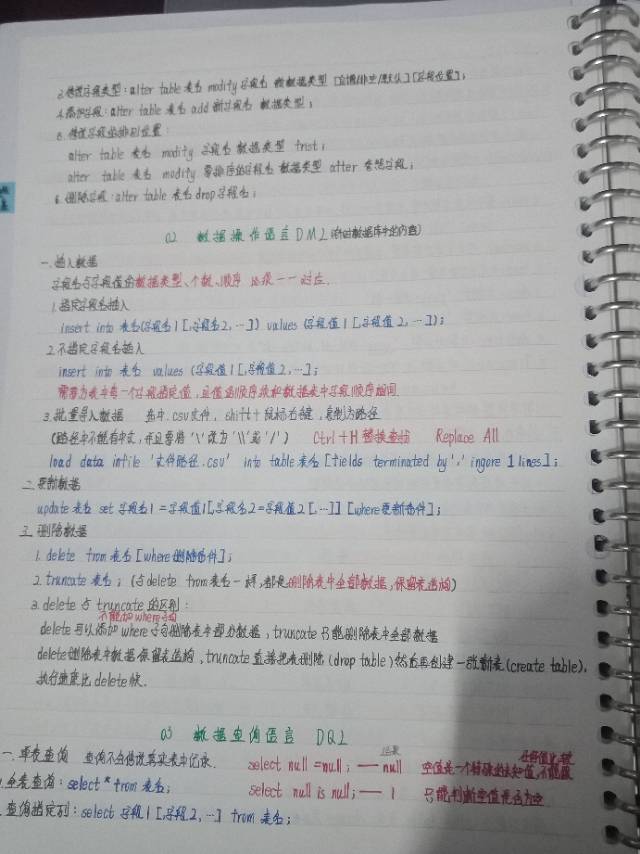 3.修改字段类型：alter table 表名 modify 字段名 新数据类型 [自增/非空/默认][字段位置]；
4.添加字段：alter table 表名 add 新字段名 数据类型；
5.修改字段的排列位置：
alter table 表名 modify 字段名 数据类型 first；
alter table 表名 modify 要排序的字段名 数据类型 after 参照字段；
6.删除字段：alter table 表名 drop 字段名；
02 数据操作语言 DML (针对数据库中的内容)
一.插入数据
字段名与字段值的数据类型、个数、顺序 必须一一对应.
1.指定字段名插入
insert into 表名(字段名1[,字段名2,…]) values (字段值1[,字段值2,…])；
2.不指定字段名插入
insert into 表名 values (字段值1[,字段值2,…]；
需要为表中每一个字段指定值，且值的顺序须和数据表中字段顺序相同
3.批量导入数据 选中.csv文件，shift+鼠标右键，复制为路径
(路径中不能有中文，并且要将'\'改为'\\'或'/') Ctrl+H 替换查找 Replace All
load data infile '文件路径.csv' into table 表名 [fields terminated by ',' ingore 1 lines]；
二.更新数据
update 表名 set 字段名1=字段值1[,字段名2=字段值2[,…]] [where更新条件]；
三.删除数据
1. delete from 表名 [where删除条件]；
2. truncate 表名；(与delete from表名一样，都是删除表中全部数据，保留表结构)
3. delete 与 truncate 的区别：
不能加where子句
delete 可以添加where子句删除表中部分数据，truncate 只能删除表中全部数据
delete删除表中数据保留表结构，truncate 直接把表删除(drop table)然后再创建一张新表(create table)，
执行速度比delete快.
03 数据查询语言 DQL
一.单表查询 查询不会修改真实表中记录. select null = null；—结果 null 空值是一个特殊的未知值,不能做任何值比较
1.全表查询：select * from 表名； select null is null；— 1 只能判断空值是否为空
2.查询指定列：select 字段1[,字段2,…] from 表名；